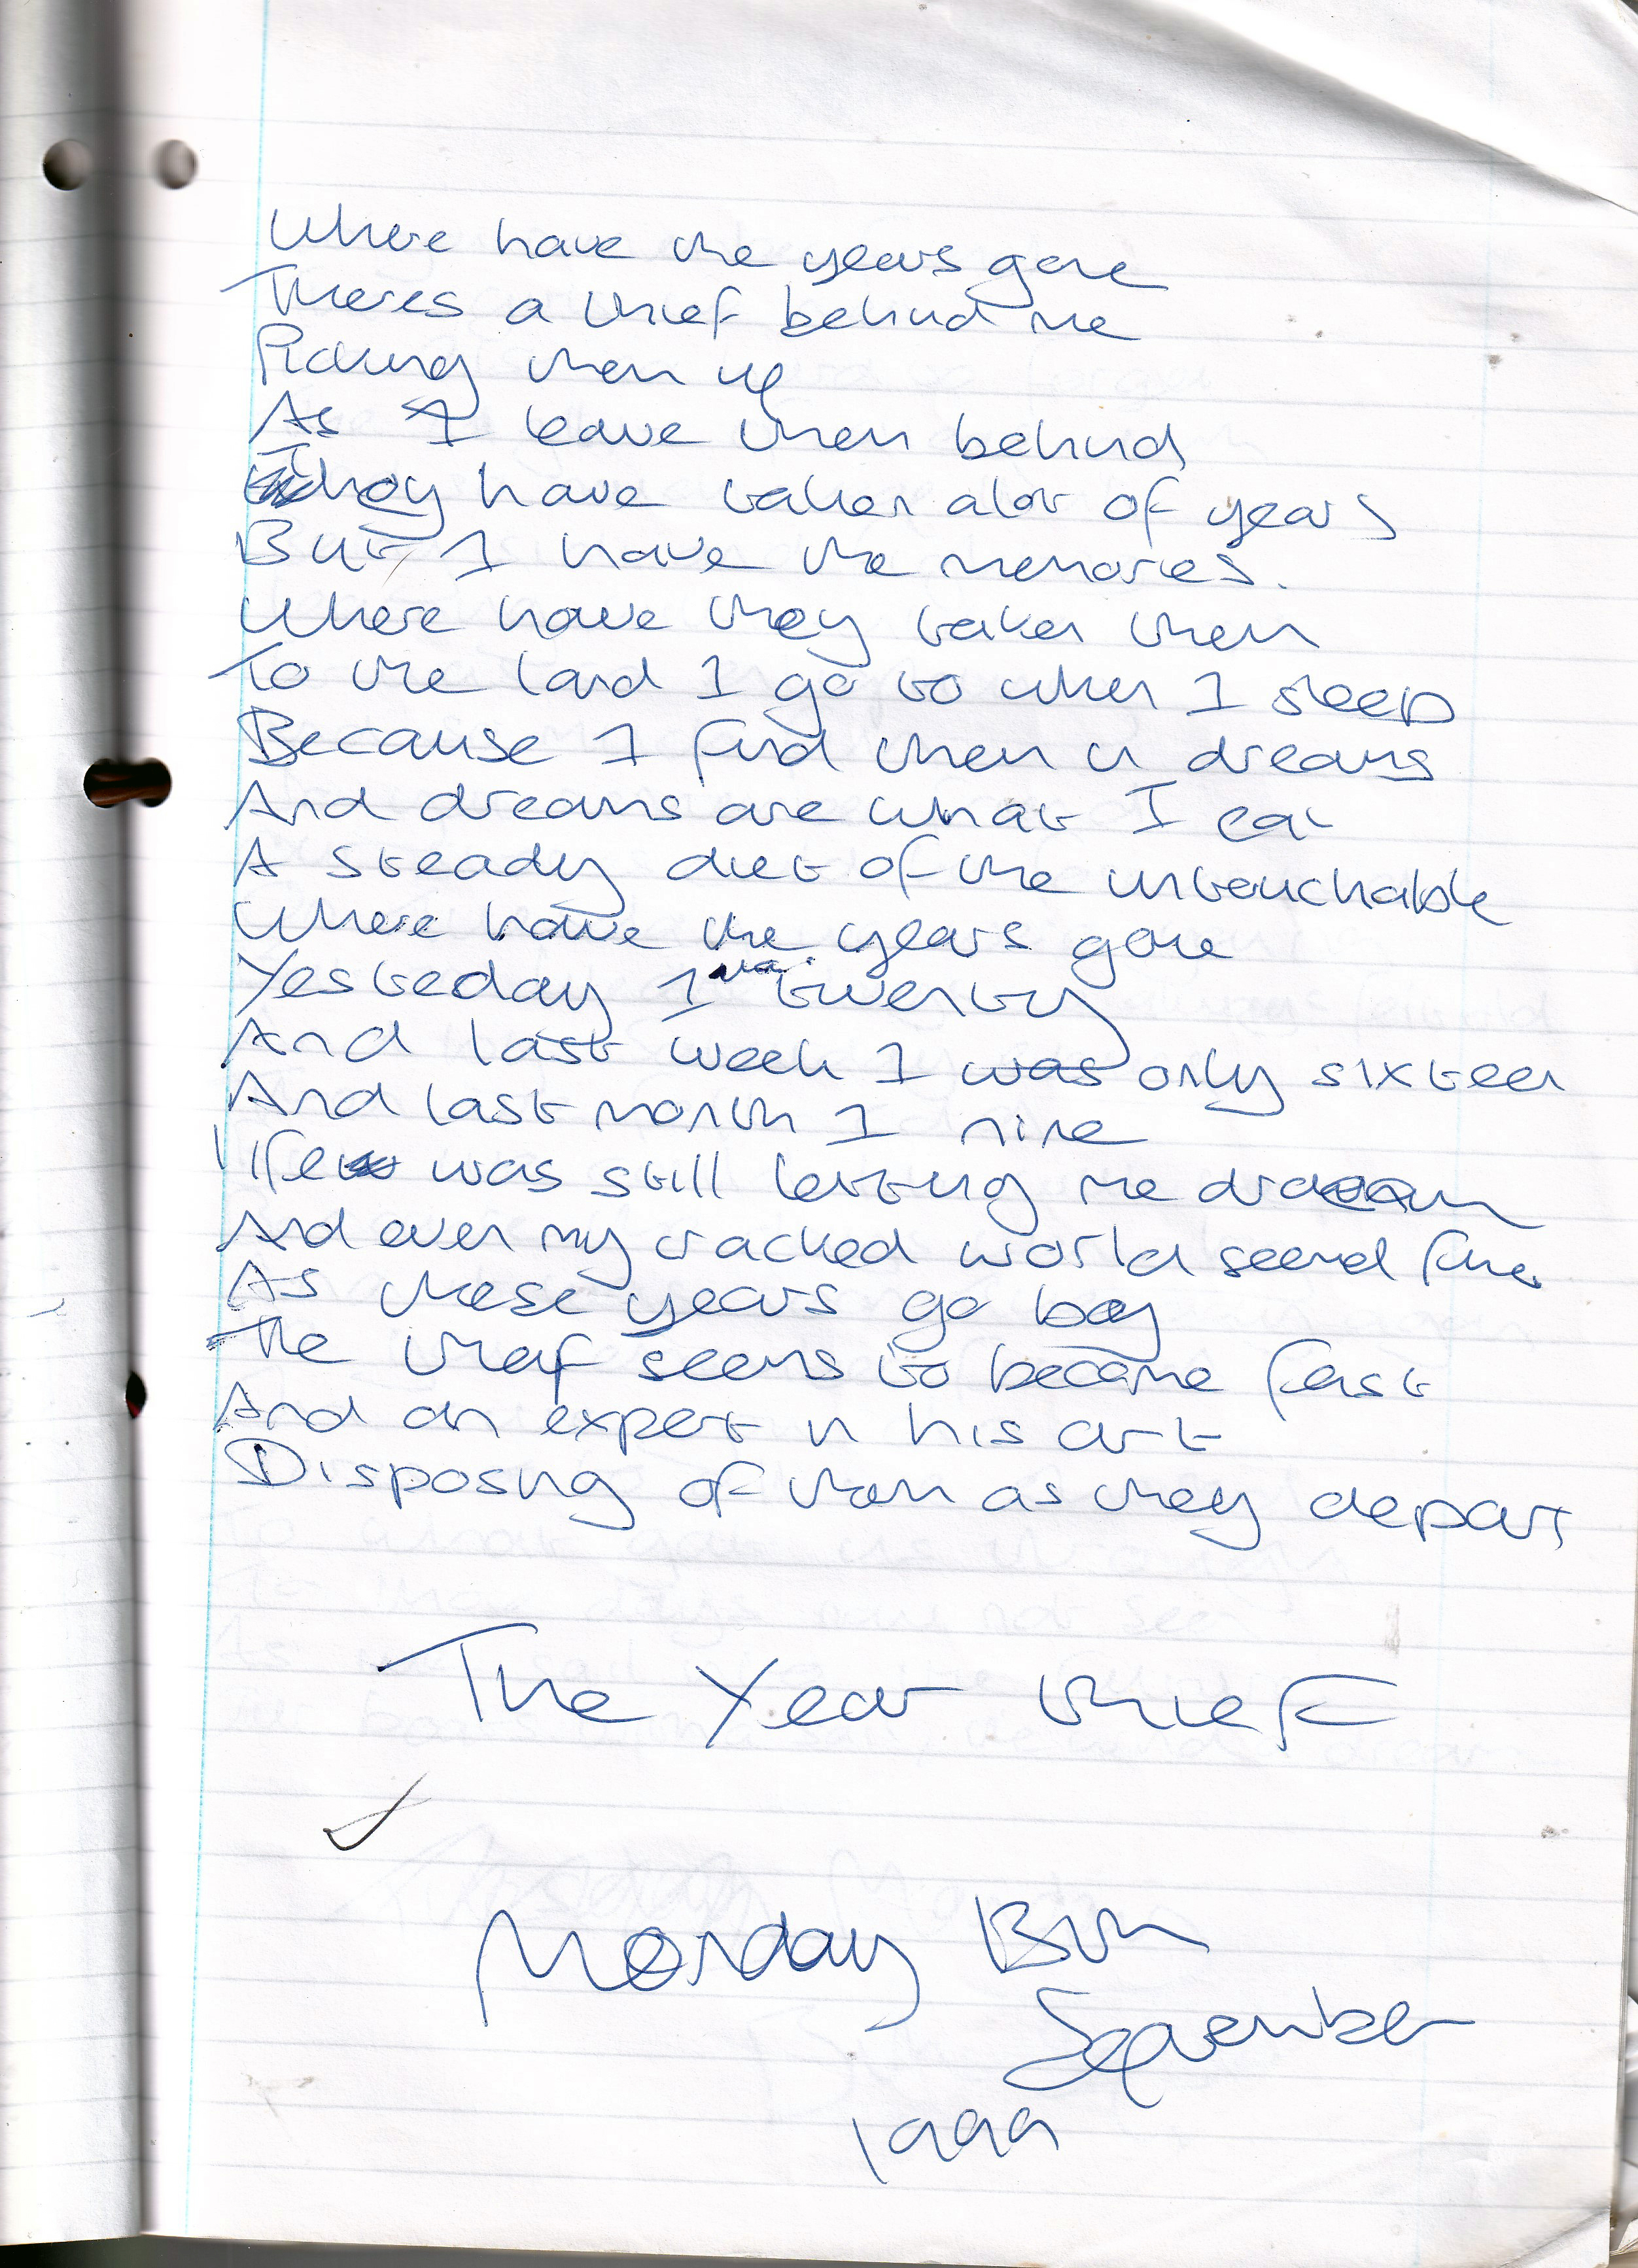 Where have the years gone
Theres a thief behind me
Picking them up
As I leave them behind
They have taken alot of years
But I have the memories.
Where have they taken them
To the land I go to when I sleep
Because I find them in dreams
And dreams are what I eat
A steady diet of the untouchable
Where have the years gone
Yesteday I was twenty
And last week I was only sixteen
And last month I nine
life was still letting me dream
And even my cracked world seemd fine
As these years go by
The theif seems to become fast
And an expert in his art
Disposing of them as they depart
The Year thief
Monday 13th
September
1999